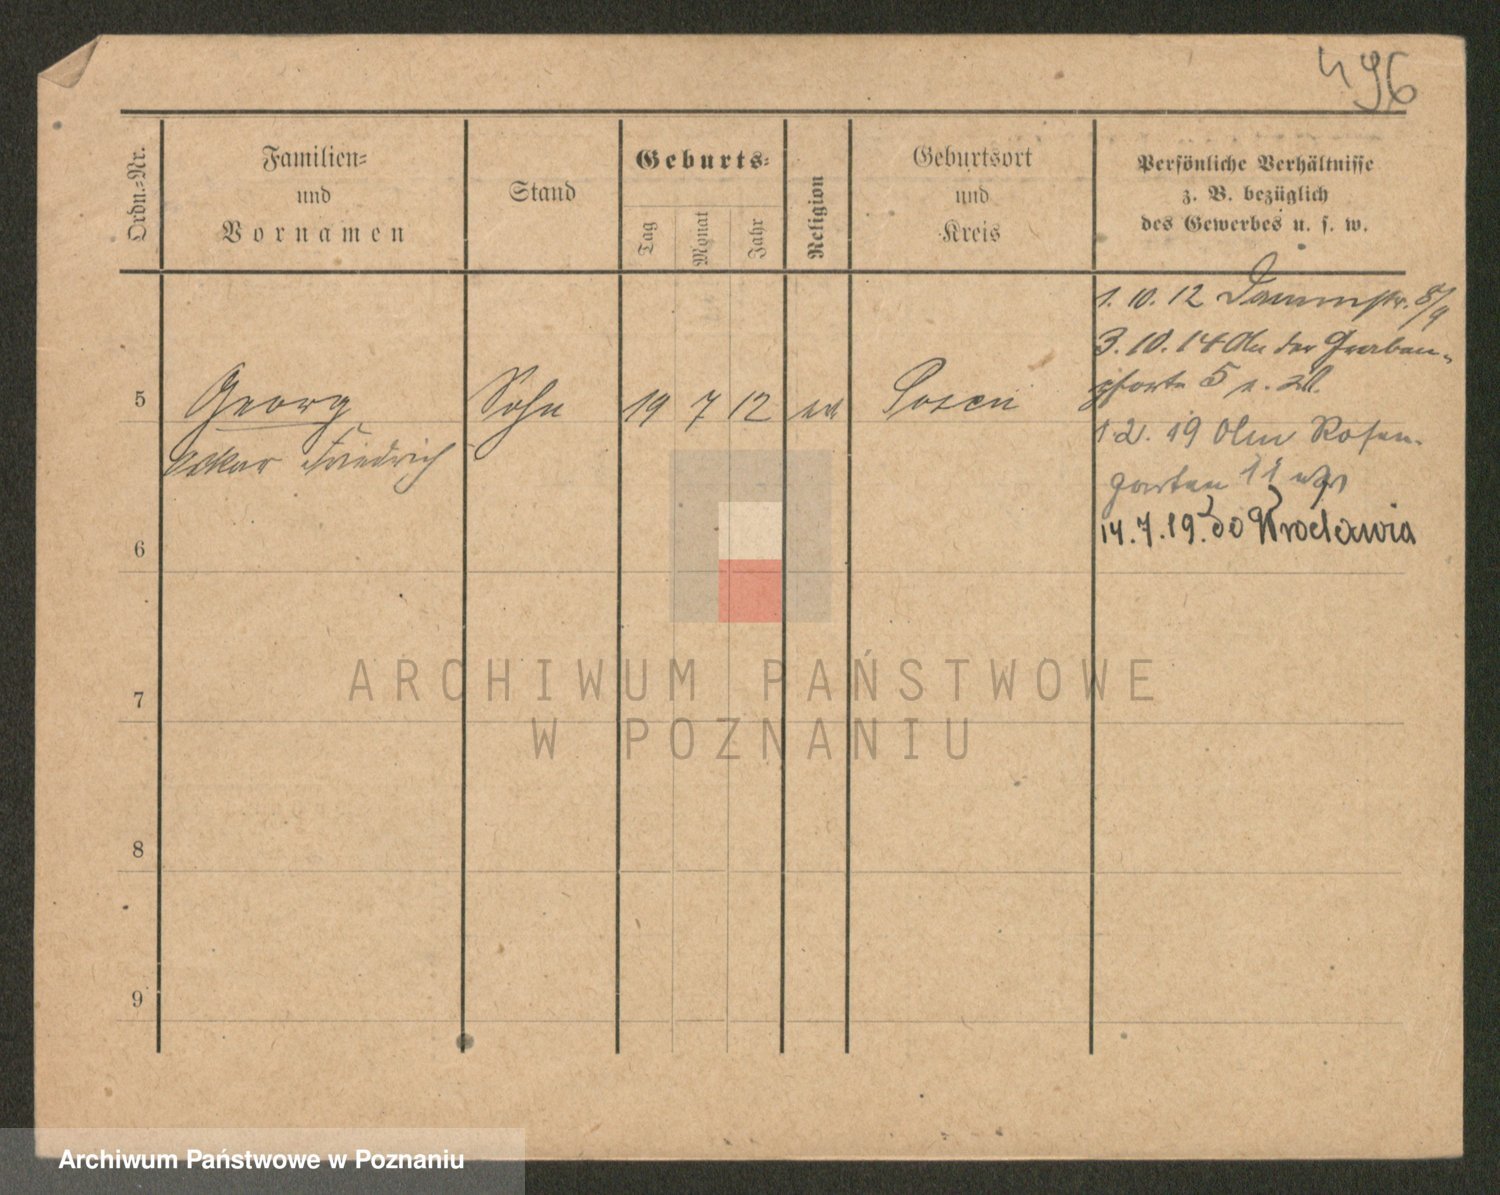 496
Ordn.-Nr.
Familien-
und
Vornamen
Stand
Geburts-
Tag
Monat
Jahr
Religion
Geburtsort
und
Kreis
Persönliche Verhältnisse
z. B. bezüglich
des Gewerbes u. s. w.
1. 10. 12 Dammstr. 8/9
3. 10. 14 An der Graben-
5 Georg Sohn 19 7 12 ev Posen
pforte 5
Oskar Friedrich
1. 2. 19 Am Rosen-
garten 11
6
14.7.19. do Wrocławia
ARCHIWUM PAŃSTWOWE
7
W POZNANIU
8
9
Archiwum Państwowe w Poznaniu